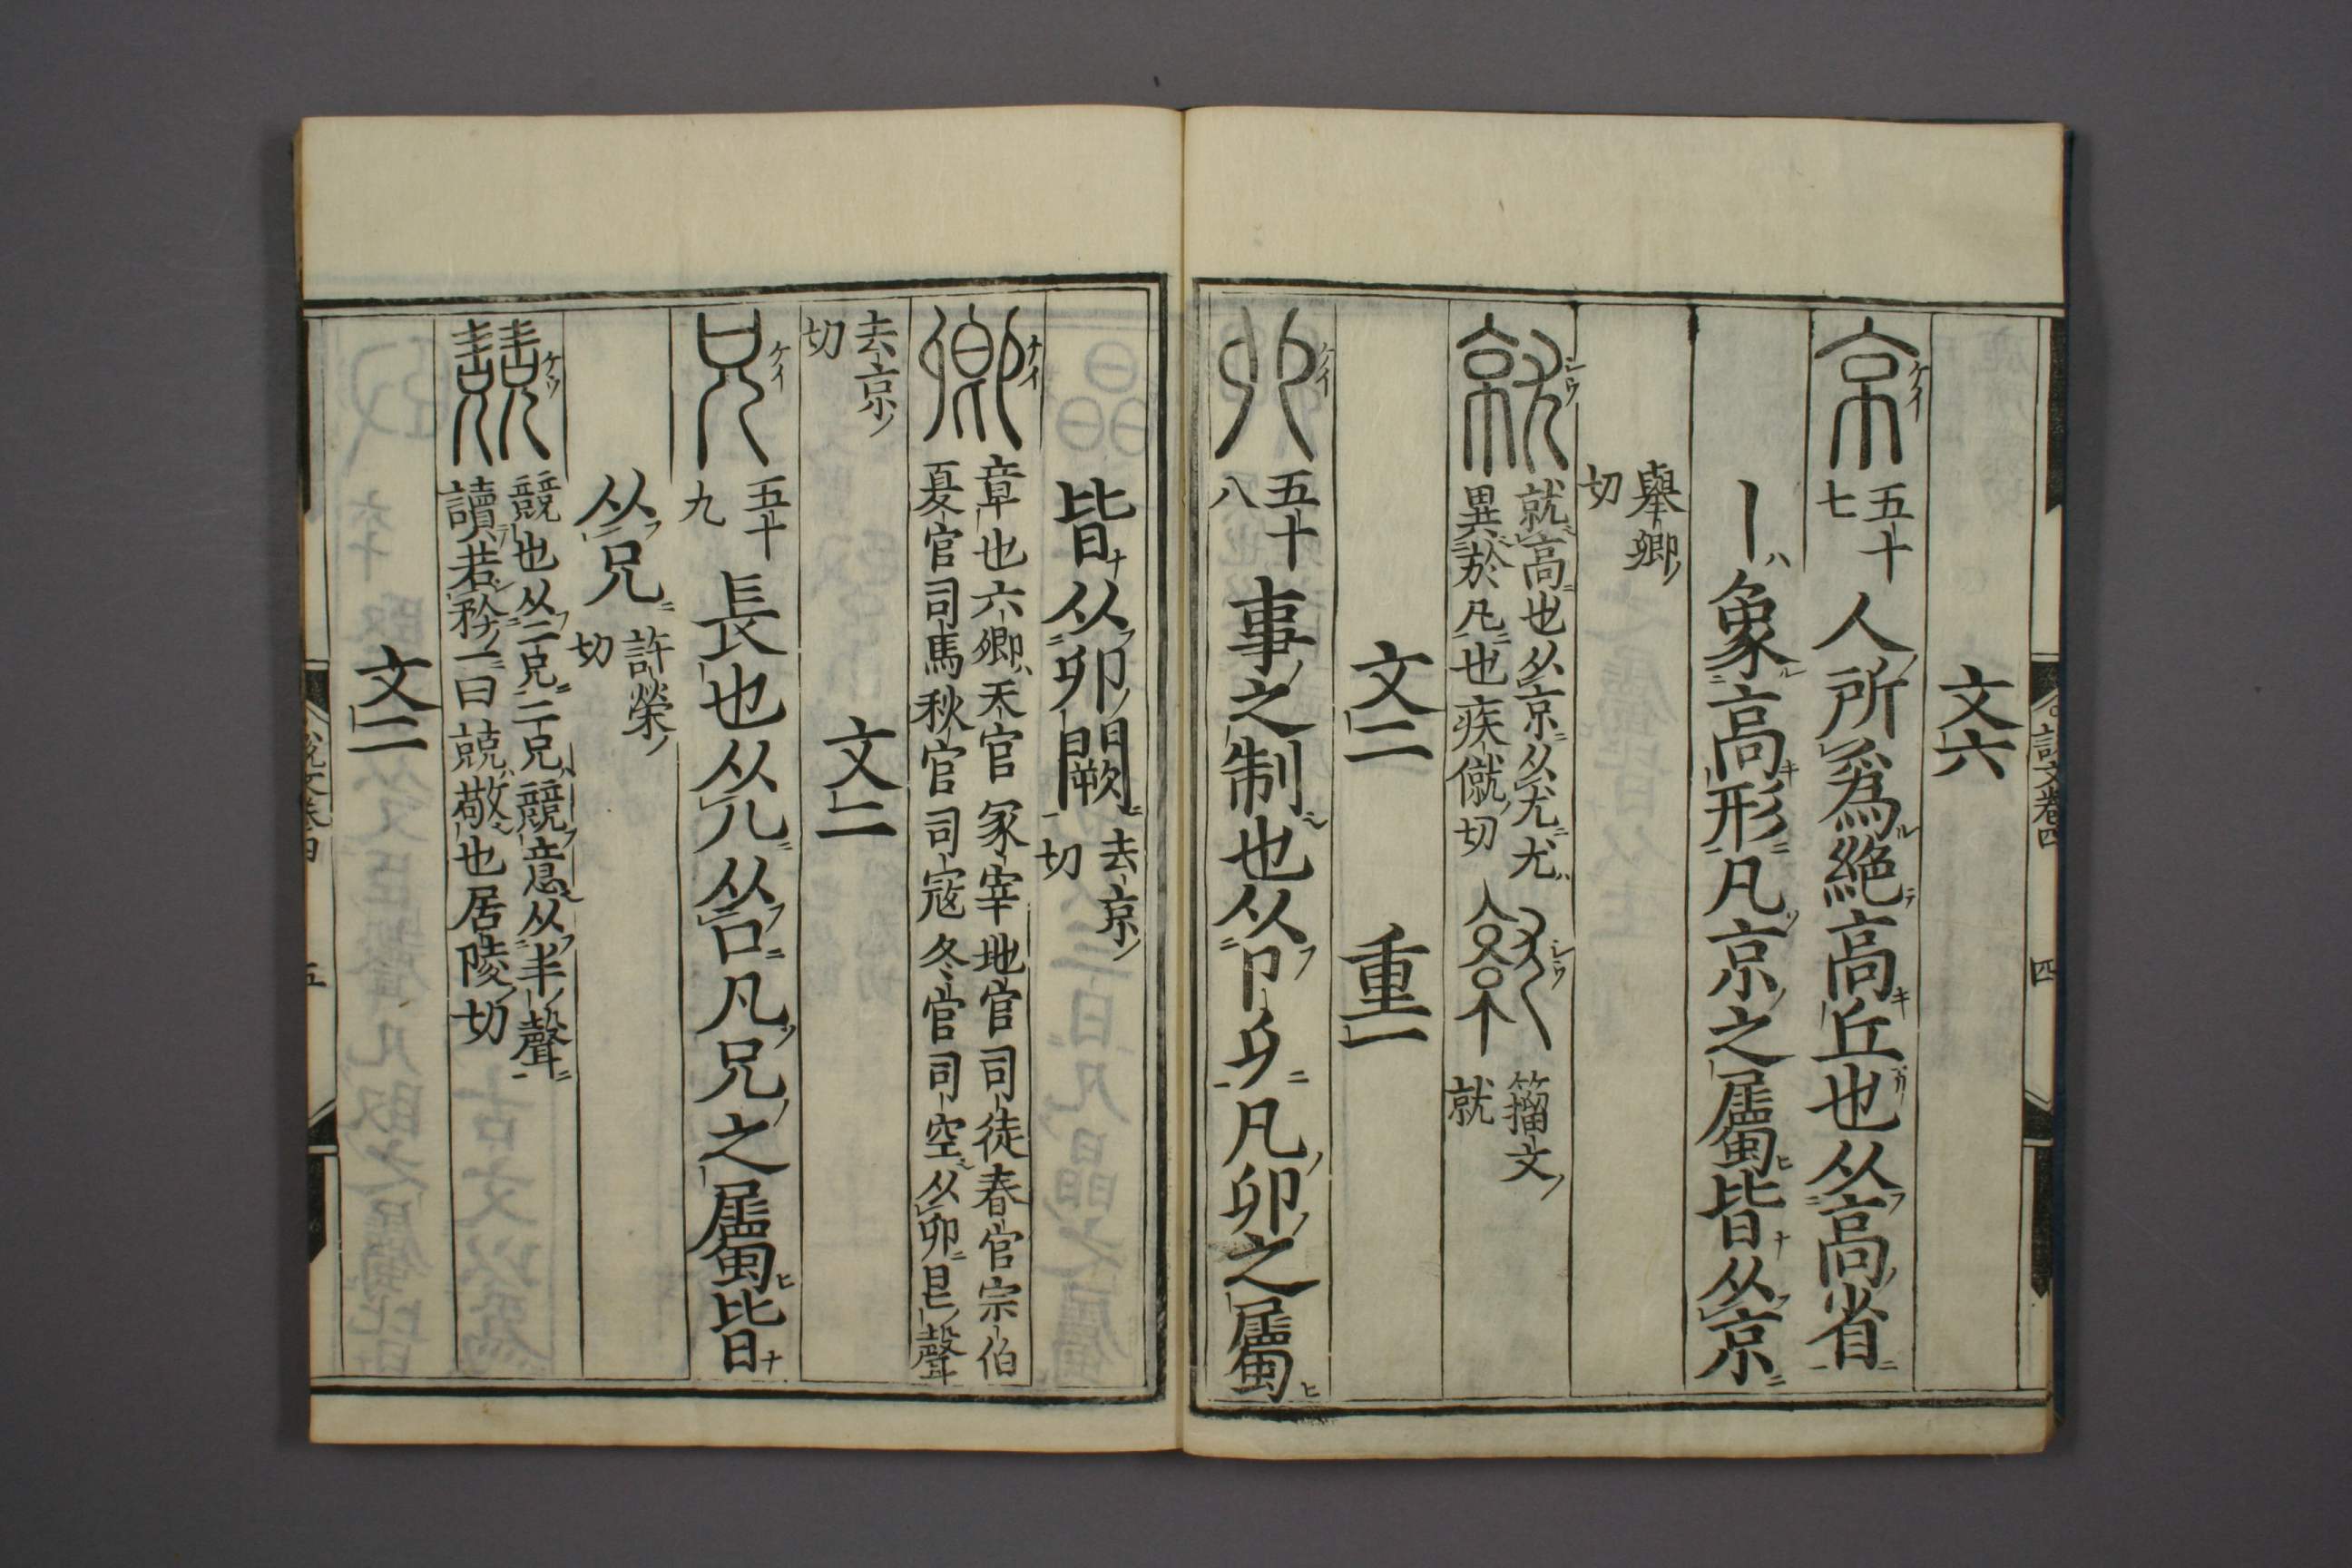 文六
京 ケイ 五十七 人所爲絶高丘也从高省
丨象高形凡京之屬皆从京
舉卿切
就 シウ 就高也从京从尤尤異於凡也疾僦切 シウ 籀文就
文二 重一
𠨍 ケイ 五十八 事之制也从卩𠨎凡𠨍之屬
皆从𠨍闕去京切
卿 ケイ 章也六卿天官冢宰地官司徒春官宗伯
夏官司馬秋官司寇冬官司空从𠨍皀聲
去京切
文二
兄 ケイ 五十九 長也从儿从口凡兄之屬皆
从兄 許榮切
競 ケウ 競也从二兄二兄競意从丰聲
讀若矜一曰兢敬也居陵切
文二
説文卷四 四
説文卷四 五